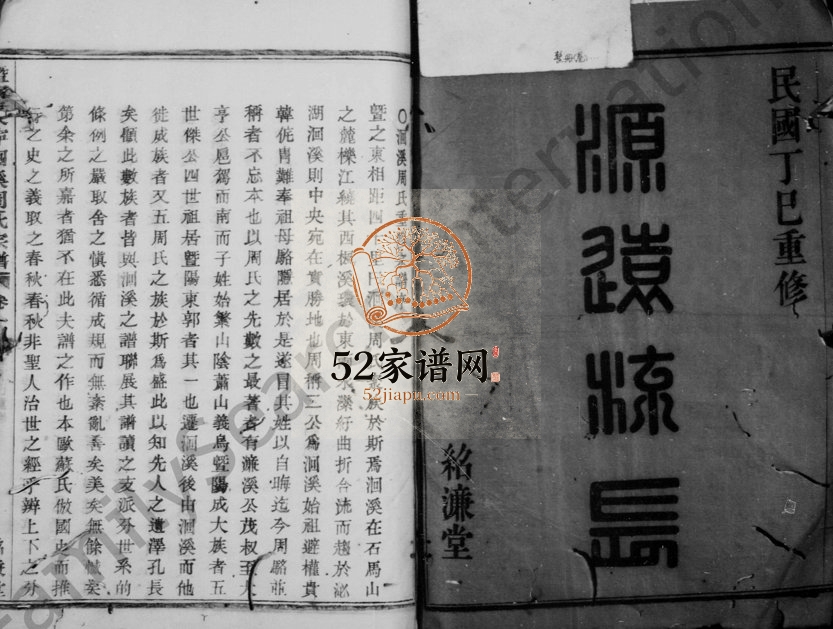 民國丁巳重修
源遠流長
紹濂堂
洄溪周氏
暨之東相距四 族於斯焉洄溪在石馬山
之麓櫟江繞其西楓溪 於東 水瀠紆曲折合流而趨於泌
湖洄溪則中央宛在實勝地也周稱三公為洄溪始祖避權貴
韓侂胄難奉祖母駱隱居於是遂冒其姓以自晦迄今周駱並
稱者不忘本也以周氏之先數之最著者有濂溪公茂叔至
亨公扈駕而南而子姓始繁山陰蕭山義烏暨陽成大族者五
世傑公四世祖居暨陽東郭者其一也遷洄溪後由洄溪而他
徙成族者又五周氏之族於斯為盛此以知先人之遺澤孔長
矣顧此數族者皆與洄溪之譜聯展其譜讀之支派分世系的
條例之嚴取舍之慎悉循成規而無紊亂善矣美矣無餘憾矣
第余之所嘉者猶不在此夫譜之作也本歐蘇氏倣國史而推
之史之義取之春秋春秋非聖人治世之經乎辨上下之分
洄溪周氏宗譜
堂
52家谱网
52jiapu.com
FamilySearch International